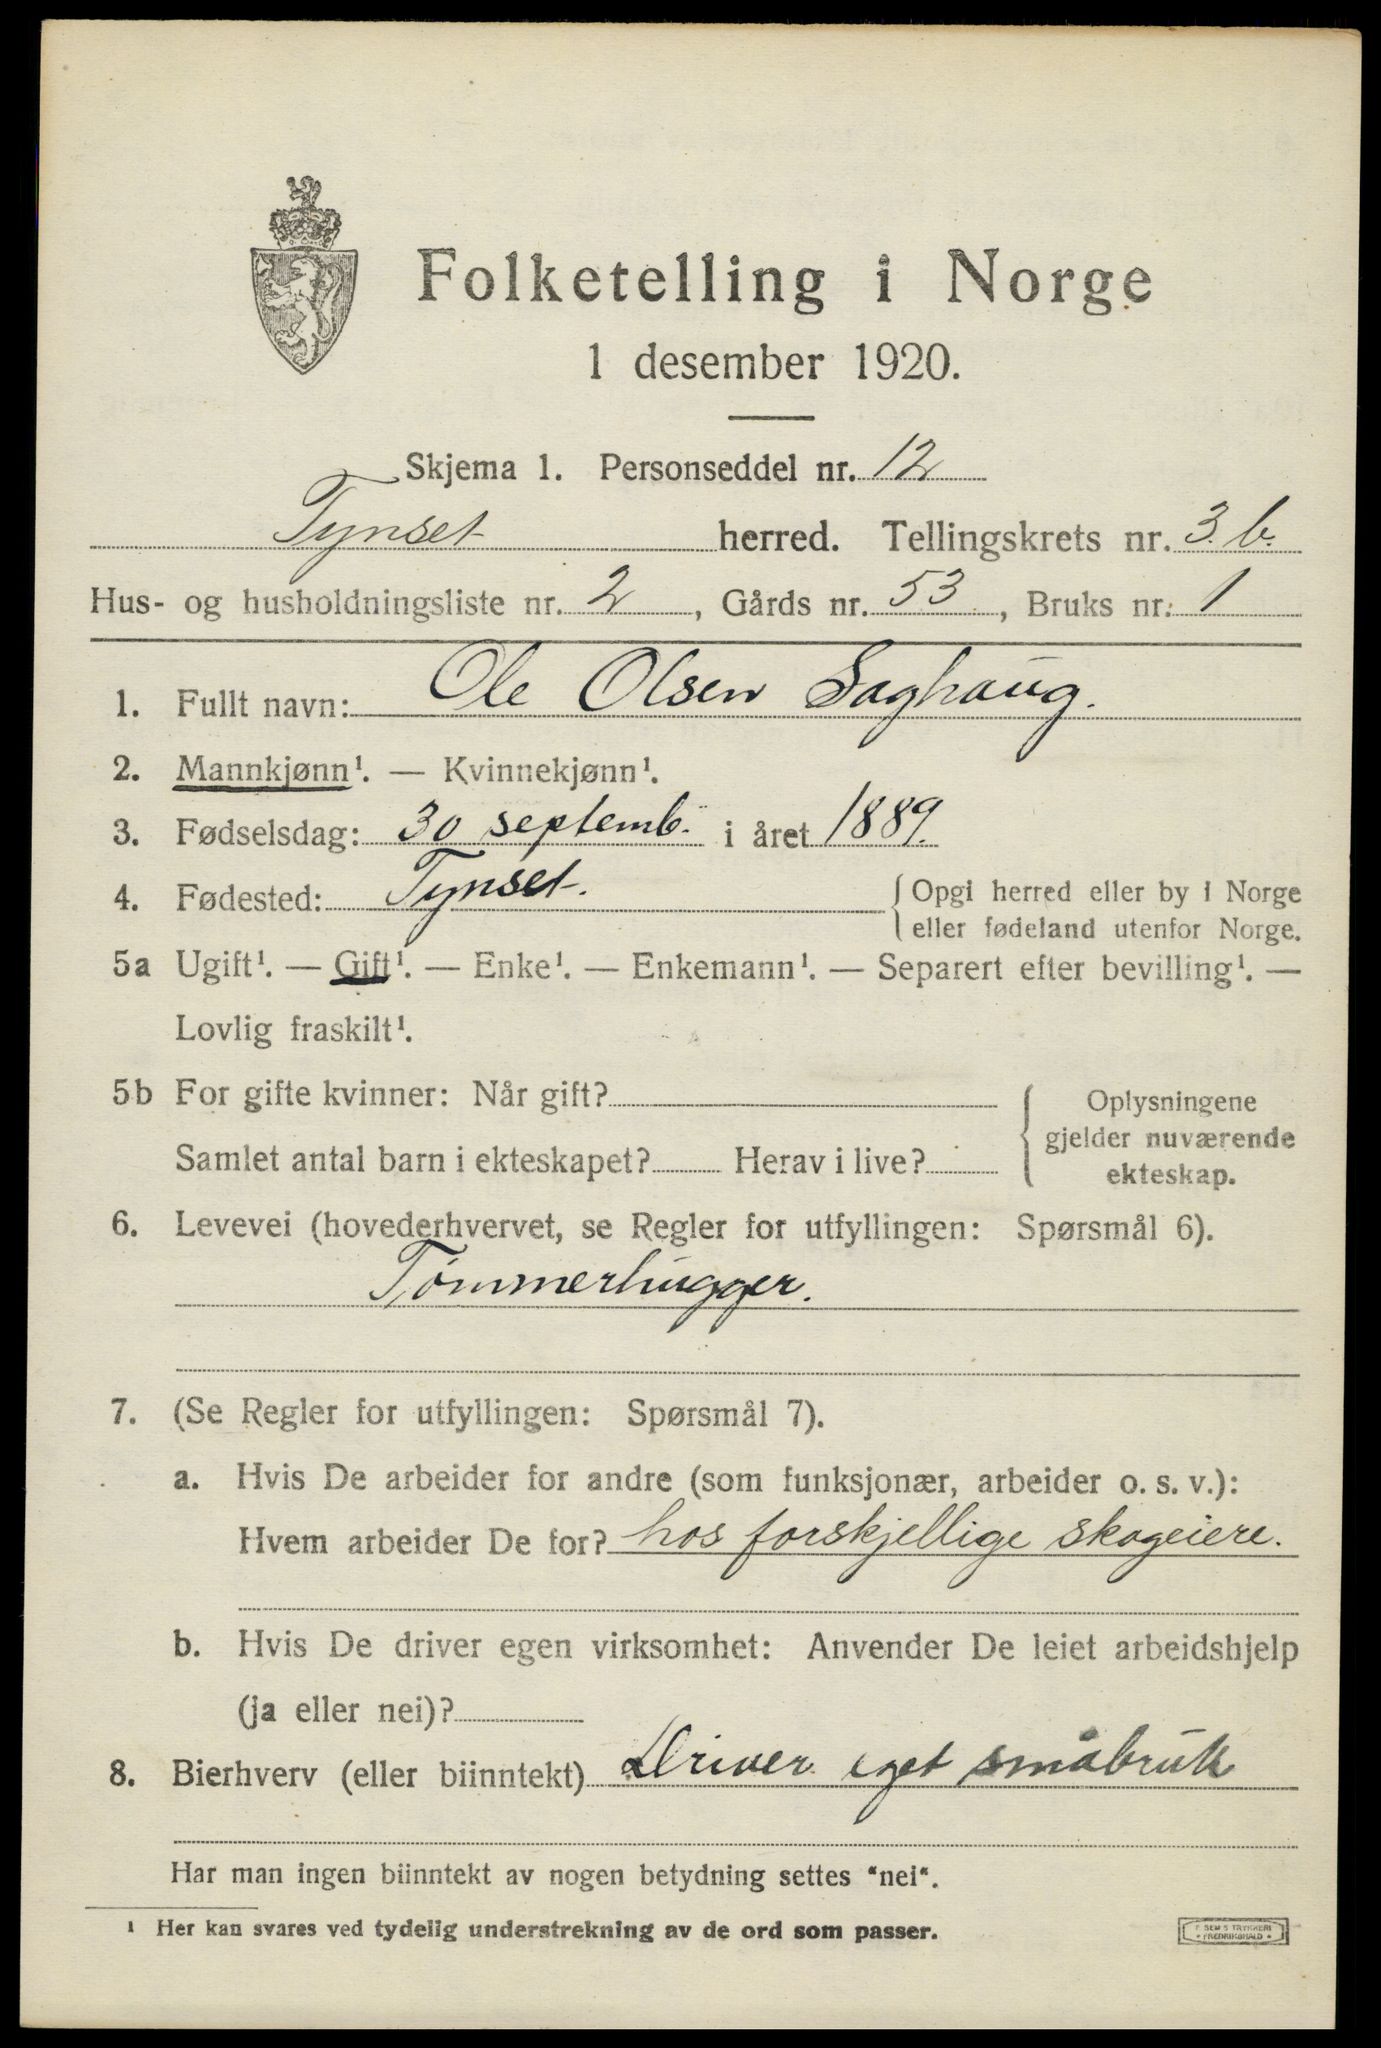 Folketelling i Norge
1 desember 1920.
Skjema 1. Personseddel nr. 12
Tynset herred. Tellingskrets nr. 3.b.
Hus- og husholdningsliste nr. 2, Gårds nr. 53, Bruks nr. 1
1. Fullt navn: Ole Olsen Saghaug.
2. Mannkjønn¹. — Kvinnekjønn¹.
3. Fødselsdag: 30 septemb. i året 1889.
4. Fødested: Tynset. { Opgi herred eller by i Norge
eller fødeland utenfor Norge.
5a Ugift¹. — Gift¹. — Enke¹. — Enkemann¹. — Separert efter bevilling¹. —
Lovlig fraskilt¹.
5b For gifte kvinner: Når gift? { Oplysningene
gjelder nuværende
Samlet antal barn i ekteskapet? Herav i live?
ekteskap.
6. Levevei (hovederhvervet, se Regler for utfyllingen: Spørsmål 6).
Tømmerhugger.
7. (Se Regler for utfyllingen: Spørsmål 7).
a. Hvis De arbeider for andre (som funksjonær, arbeider o. s. v.):
Hvem arbeider De for? hos forskjellige skogeiere.
b. Hvis De driver egen virksomhet: Anvender De leiet arbeidshjelp
(ja eller nei)?
8. Bierhverv (eller biinntekt) Driver eget småbruk
Har man ingen biinntekt av nogen betydning settes "nei".
¹ Her kan svares ved tydelig understrekning av de ord som passer.
F. SEM'S TRYKKERI
• FREDRIKSHALD •